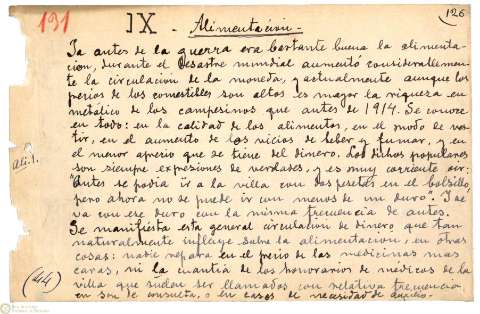 131
126
IX - Alimentación.-
Ya antes de la guerra era bastante buena la alimenta-
cion, durante el desastre mundial aumentó considerablemen-
te la circulacion de la moneda, y actualmente aunque los
precios de los comestibles son altos es mayor la riqueza en
metálico de los campesinos que antes de 1914. Se conoce
en todo: en la calidad de los alimentos, en el modo de ves-
tir, en el aumento de los vicios de beber y fumar, y en
el menor aprecio que se tiene del dinero. Los dichos populares
son siempre expresiones de verdades, y es muy corriente oir:
"Antes se podia ir a la villa con dos pesetas en el bolsillo,
pero ahora no se puede ir con menos de un duro". Y se
va con ese duro con la misma frecuencia de antes.
Se manifiesta esta general circulacion de dinero que tan
naturalmente influye sobre la alimentacion, en otras
cosas: nadie repara en el precio de las medicinas mas
caras, ni la cuantia de los honorarios de medicos de la
villa que suelen ser llamados con relativa frecuencia
en son de consulta, o en casos de necesidad de auxilio.
ali.1.
(214)